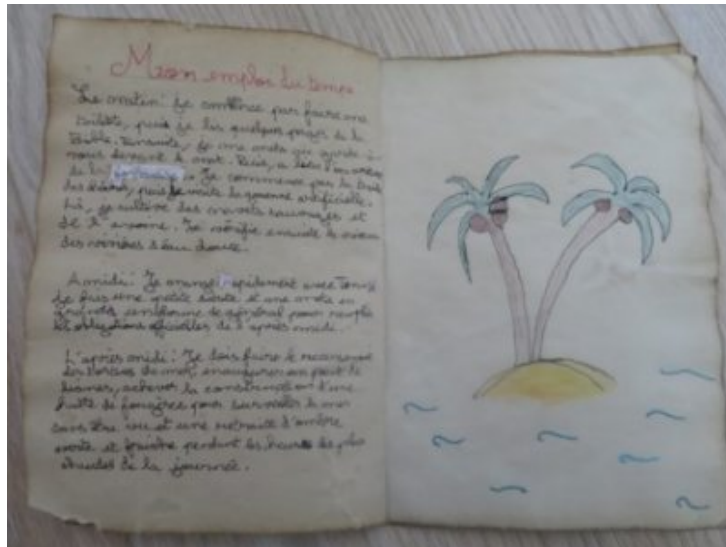 Mon emploi du temps
Le matin: Je commence par faire ma
toilette, puis je lis quelques pages de la
Bible. Ensuite, je me mets au garde à
vous devant le mat. Puis, a lieu l'ouverture
de la Je commence par la traite
des chèvres, puis je visite la garenne artificielle.
Là, je cultive des navets sauvages et
de l' Je vérifie ensuite le niveau
des rivières d'eau douce.
A midi: Je mange rapidement avec Tenn
Je fais une petite sieste et me mets en
grande uniforme de général pour remplir
les obligations officielles de l'après midi.
L'après midi: Je dois faire le recensement
des tortues de mer, inaugurer un pont de
lianes, achever la construction d'une
hutte de fougères pour surveiller la mer
sans être vu et une retraite d'ombre
verte et fraiche pendant les heures les plus
chaudes de la journée.